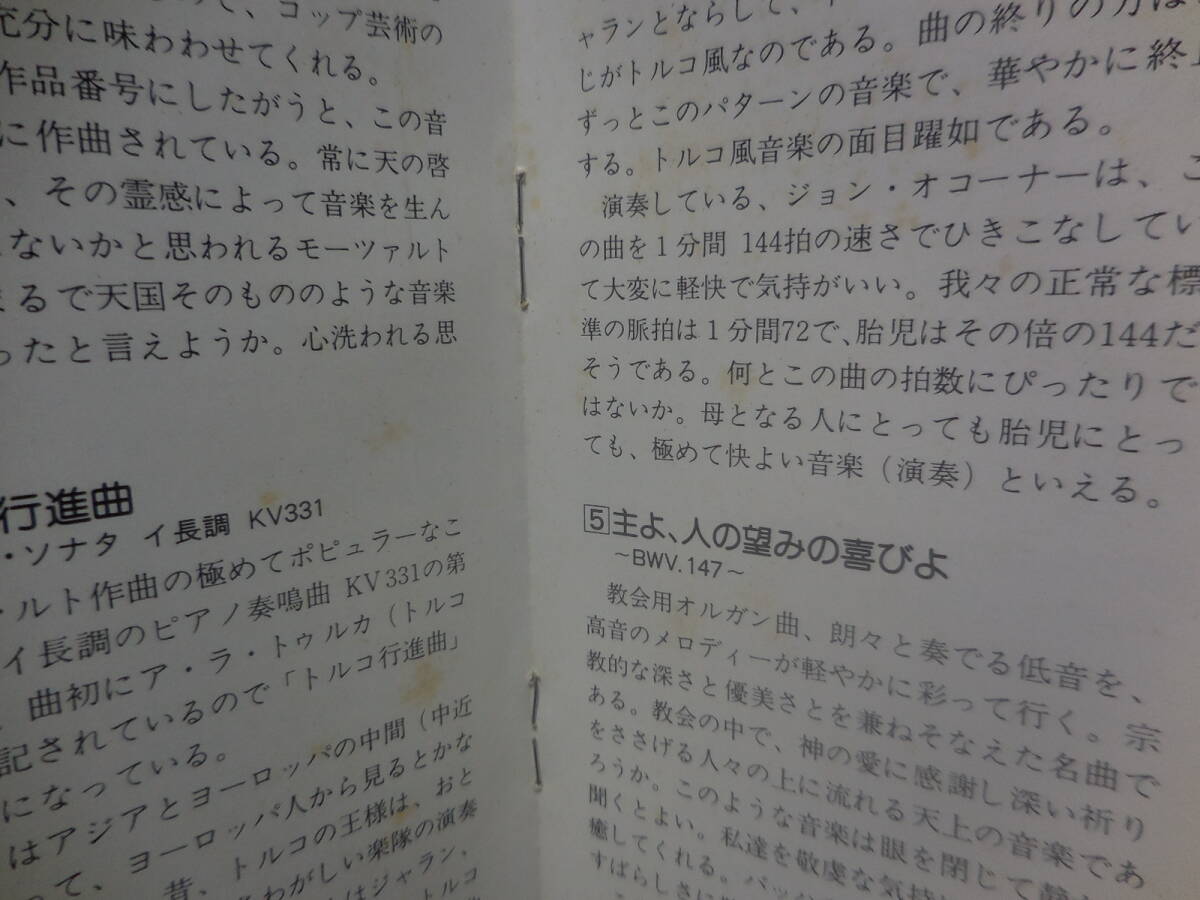 、コップ芸術の
充分に味わわせてくれる。
作品番号にしたがうと、この音
に作曲されている。常に天の啓
、その霊感によって音楽を生ん
ないかと思われるモーツァルト
まるで天国そのもののような音楽
ったと言えようか。心洗われる思
行進曲
・ソナタ イ長調 KV331
ルト作曲の極めてポピュラーなこ
イ長調のピアノ奏鳴曲 KV331の第
曲初にア・ラ・トゥルカ（トルコ
記されているので「トルコ行進曲」
になっている。
はアジアとヨーロッパの中間（中近
て、ヨーロッパ人から見るとかな
昔、トルコの王様は、おと
わがしい楽隊の演奏
はジャラン、
トルコ
ャランとならして、
じがトルコ風なのである。曲の終りの方は
ずっとこのパターンの音楽で、華やかに終止
する。トルコ風音楽の面目躍如である。
演奏している、ジョン・オコーナーは、こ
の曲を1分間 144拍の速さでひきこなしてい
て大変に軽快で気持がいい。我々の正常な標
準の脈拍は1分間72で、胎児はその倍の144だ
そうである。何とこの曲の拍数にぴったりで
はないか。母となる人にとっても胎児にとっ
ても、極めて快よい音楽（演奏）といえる。
5 主よ、人の望みの喜びよ
〜BWV.147〜
教会用オルガン曲、朗々と奏でる低音を、
高音のメロディーが軽やかに彩って行く。宗
教的な深さと優美さとを兼ねそなえた名曲で
ある。教会の中で、神の愛に感謝し深い祈り
をささげる人々の上に流れる天上の音楽であ
ろうか。このような音楽は眼を閉じて
聞くとよい。私達を敬虔な気持
癒してくれる。バッ
すばらしさに